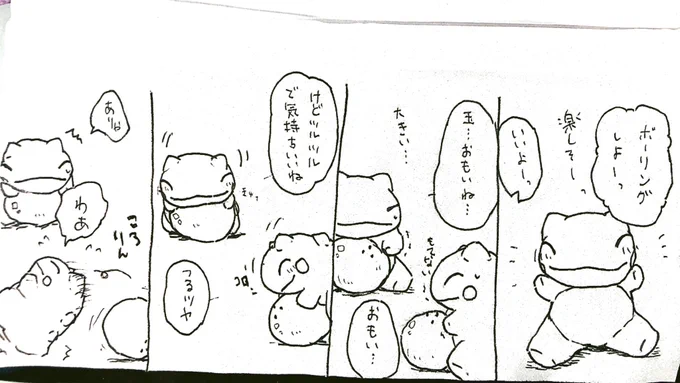 ボーリング
しよーっ
楽しそーっ
いいよーっ
玉…おもいね…
大きい…
おもい…
けどツルツル
で気持ちいいね
つるツヤ
コロ
ありゃ
わあ
ころ
りん